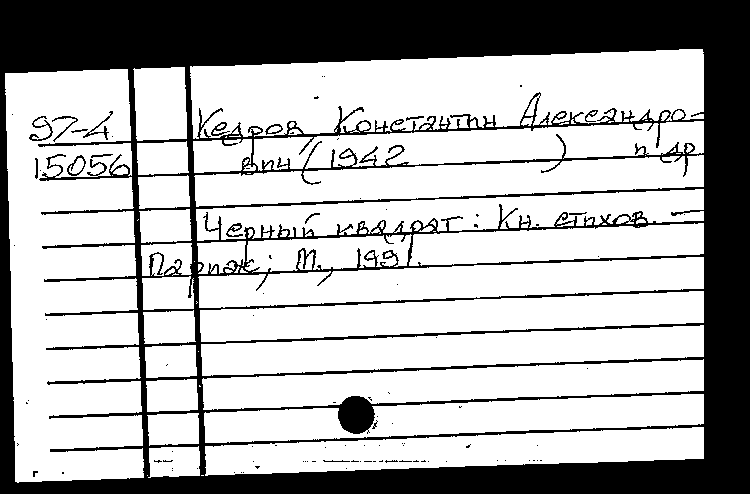 97-4 Кедров, Константин Александро-
15056 вич (1942 ) и др
Черный квадрат : Кн. стихов. —
Париж; М., 1991.